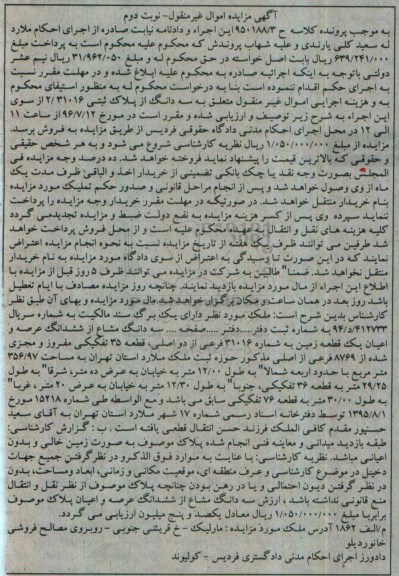 آگهی مزایده اموال غیرمنقول- نوبت دوم
به موجب پرونده کلاسه ح ۹۵۰۱۸۸/۳ این اجراء و دادنامه نیابت صادره از اجرای احکام ملارد
له سعید کلی یارندی و علیه شهاب پروندش که محکوم علیه محکوم است به پرداخت مبلغ
۶۳۹/۲۴۱/۰۰۰ ریال بابت اصل خواسته در حق محکوم له و مبلغ ۳۱/۹۶۲/۰۵۰ ریال نیم عشر
دولتی باتوجه به اینکه اجرائیه صادره به محکوم علیه ابلاغ شده و در مهلت مقرر نسبت
به اجرای حکم اقدام ننموده است بنا به درخواست محکوم له به منظور استیفای محکوم
به و هزینه اجرایی اموال غیر منقول متعلق به سه دانگ از پلاک ثبتی ۲/۳۱۰۱۶ از سوی
این اجراء به شرح زیر توصیف و ارزیابی شده و مقرر است در مورخ ۹۶/۷/۱۲ از ساعت ۱۱
الی ۱۲ در محل اجرای احکام مدنی دادگاه حقوقی فردیس از طریق مزایده به فروش برسد.
مزایده از مبلغ ۱/۰۵۰/۰۰۰/۰۰۰ ریال نظریه کارشناسی شروع می شود و به هر شخص حقیقی
و حقوقی که بالاترین قیمت را پیشنهاد نماید فروخته خواهد شد. ده درصد وجه مزایده فی
المجلس بصورت وجه نقد یا چک بانکی تضمینی از خریدار اخذ و الباقی ظرف مدت یک
ماه از وی وصول خواهد شد و پس از انجام مراحل قانونی و صدور حکم تملیک مورد مزایده
بنام خریدار منتقل خواهد شد. در صورتیکه در مهلت مقرر خریدار وجه مزایده را پرداخت
ننماید سپرده وی پس از کسر هزینه مزایده به نفع دولت ضبط و مزایده تجدیدمی گردد
کلیه هزینه های نقل و انتقال به عهده محکوم علیه است و از محل فروش پرداخت خواهد
شد طرفین می توانند ظرف یک هفته از تاریخ مزایده نسبت به نحوه انجام مزایده اعتراض
نمایند که در این صورت تا رسیدگی به اعتراض از سوی دادگاه مورد مزایده به نام خریدار
منتقل نخواهید شد. ضمنا" طالبین به شرکت در مزایده می توانند ظرف ۵ روز قبل از مزایده با
اطلاع این اجراء از مال مورد مزایده بازدید نمایند. چنانچه روز مزایده مصادف با ایام تعطیل
باشد روز بعد در همان ساعت و مکان برگزار خواهد شد.مال مورد مزایده و بهای آن طبق نظر
کارشناس بدین شرح است: ملک مورد نظر دارای یک برگ سند مالکیت به شماره سریال
۹۴/د/۴۱۲۷۳۳ به شماره ثبت دفتر.....دفتر .....صفحه .... سه دانگ مشاع از ششدانگ عرصه و
اعیان یک قطعه زمین به شماره ۳۱۰۱۶ فرعی از دو اصلی، قطعه ۳۵ تفکیکی مفروز و مجزی
شده از ۸۷۶۹ فرعی از اصلی مذکور حوزه ثبت ملک ملارد استان تهران به مساحت ۳۵۶/۹۷
متر مربع با حدود اربعه شمالا" به طول ۱۲/۰۰ متر به خیابان به عرض ده متر، شرقا" به طول
۲۹/۲۵ متر به قطعه ۳۶ تفکیکی، جنوبا" به طول ۱۲/۳۰ متر به خیابان به عرض ۲۰ متر ، غربا"
به طول ۳۰/۰۰ متر به قطعه ۷۶ تفکیکی سابق می باشد و مع الواسطه طی شماره ۱۵۲۱۸ مورخ
۱۳۹۵/۸/۱ توسط دفترخانه اسناد رسمی شماره ۱۷ شهر ملارد استان تهران به آقای سعید
حسنپور مقدم کافی الملک فرزند حسن انتقال قطعی یافته است . ب : گزارش کارشناسی:
طبقه بازدید میدانی و معاینه فنی انجام شده پلاک موصوف به صورت زمین خالی و بدون
اعیانی میباشد. نظریه کارشناسی: با عنایت به موارد فوق الذکر و در نظر گرفتن جمیع جهات
دخیل در موضوع کارشناسی و عرف منطقه ای، موقعیت مکانی و زمانی، ابعاد ومساحت، بدون
در نظر گرفتن دیون احتمالی و یا در رهن بودن چنانچه پلاک موصوف از نظر نقل و انتقال
منع قانونی نداشته باشد ، ارزش سه دانگ مشاع از ششدانگ عرصه و اعیان پلاک موصوف
برابربا مبلغ ۱/۰۵۰/۰۰۰/۰۰۰ ریال معادل یکصد و پنج میلیون ارزیابی می گردد.
م/الف ۱۸۶۲ آدرس ملک مورد مزایده : مارلیک - خ قریشی جنوبی - روبروی مصالح فروشی
خانوردیلو
دادورز اجرای احکام مدنی دادگستری فردیس - کولیوند